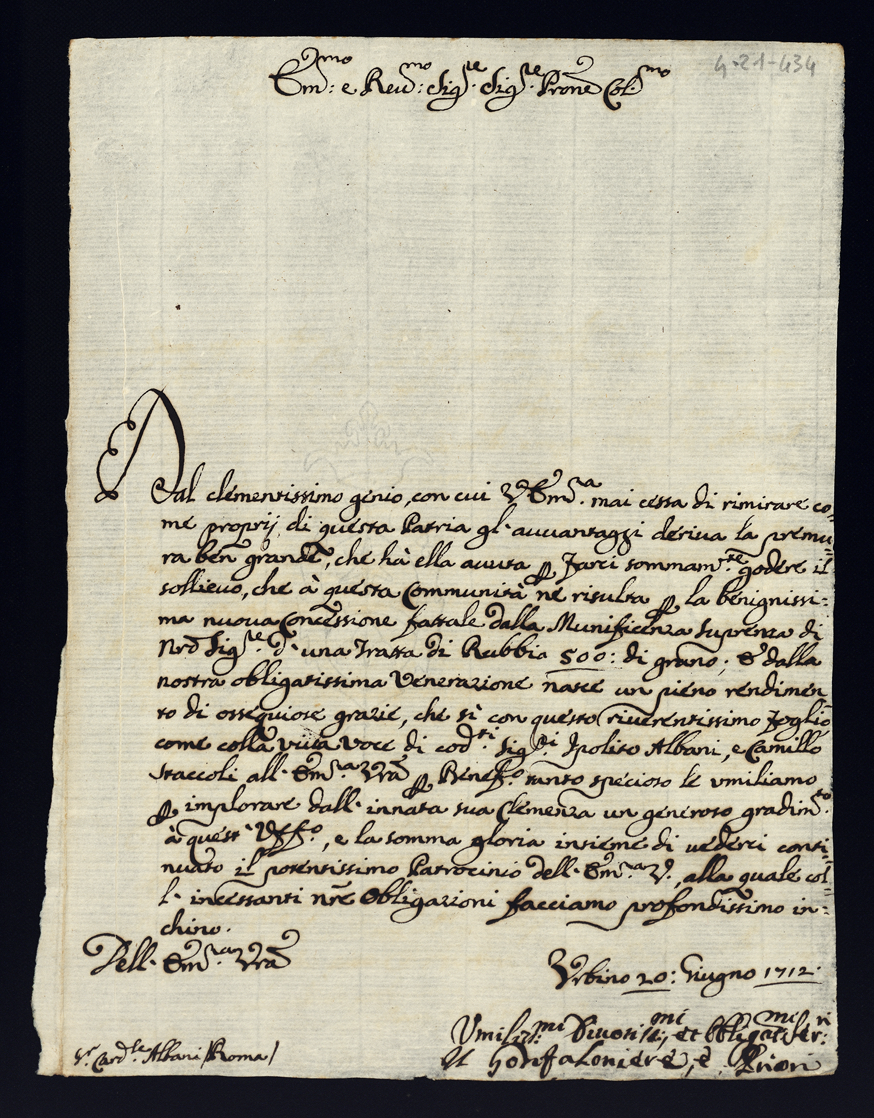 4-21-434
Em:mo e Reu:mo Sig:re Sig:re Prone Col:mo
Dal clementissimo genio, con cui V Em:a mai cessa di rimirare co-
me proprij di questa Patria gl' auuantaggi deriua la premu-
ra ben grande, che hà ella auuta ꝑ farci sommam:te godere il
sollieuo, che à questa Communità ne risulta ꝑ la benignissi-
ma nuoua Concessione fattale dalla Munificenza suprema di
Nro Sig:re d'una Tratta di Rubbia 500: di grano; E dalla
nostra obligatissima Venerazione nasce un pieno rendimen
to di ossequiose grazie, che sì con questo riuerentissimo foglio
come colla viua voce di cod:ti Sig:ri Ipolito Albani, e Camillo
Staccoli all' Em:a Vra ꝑ Benef:o tanto specioso le vmiliamo
ꝑ implorare dall' innata sua Clemenza un generoso gradim:to
à quest' Vff:o, e la somma gloria insieme di vederci conti-
nuato il potentissimo Patrocinio dell' Em:a V., alla quale col-
l' incessanti nre Obligazioni facciamo profondissimo in-
chino.
Dell' Em:a Vra
Vrbino 20: Giugno 1712.
Vmiliss:mi Diuotiss:mi, et Obligatiss:mi Ser:ri
Il Gonfaloniere, e Priori
S:r Card:le Albani /Roma/